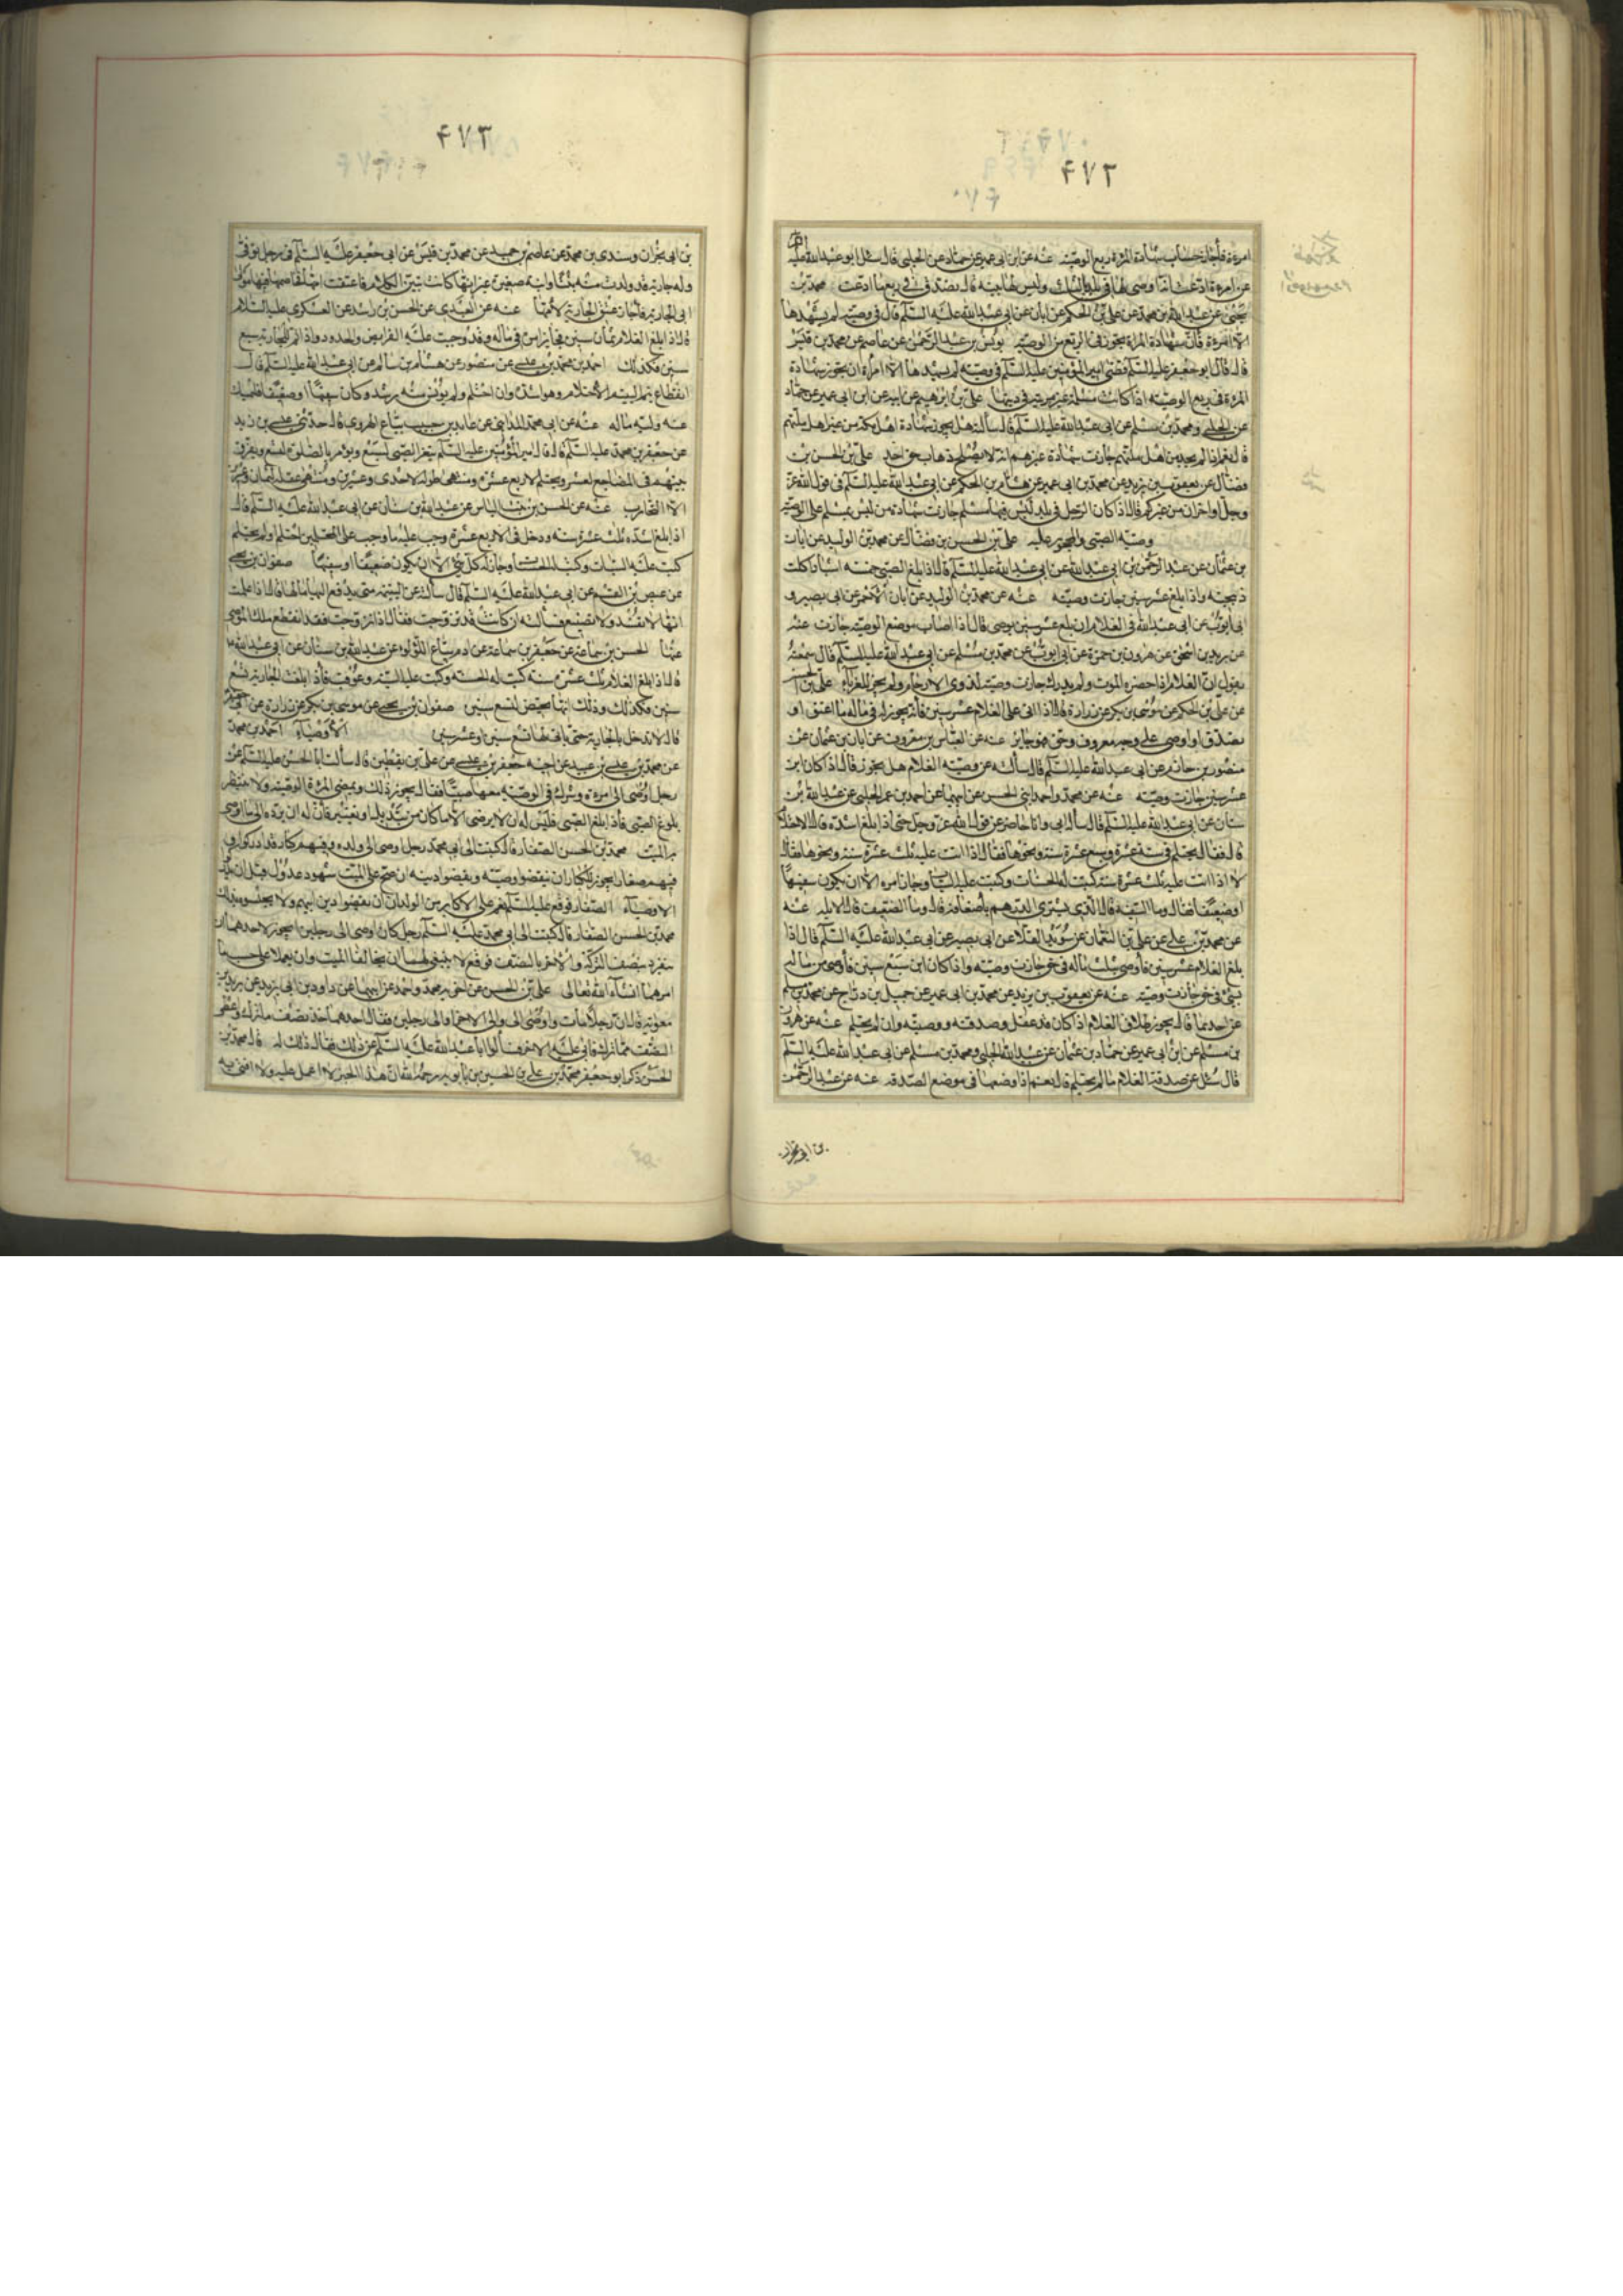 ۴۷۲
امرءة فاجاز بحساب شهادة المرءة ربع الوصية عنه عن ابن ابى عمير عن حماد عن الحلبى قال سئل ابو عبد الله عليه
عن امرءة ادعت انه اوصى لها فى بلد بالثلث وليس لها بينة قال تصدق فى ربع ما ادعت محمد بن
يحيى عن عبد الله بن محمد عن على بن الحكم عن ابان عن ابى عبد الله عليه السلم قال فى وصية لم يشهدها
الا امرءة فان شهادة المراة تجوز فى الربع من الوصية يونس بن عبد الرحمن عن عاصم عن محمد بن قيس
قال قال ابو جعفر عليه السلم قضى امير المؤمنين عليه السلم فى وصية لم يشهدها الا امراة ان يجوز شهادة
المرءة فى ربع الوصية اذا كانت مسلمة غير مريبة فى دينها على بن ابرهيم عن ابيه عن ابن ابى عمير عن حماد
عن الحلبى ومحمد بن مسلم عن ابى عبد الله عليه السلم قال سالته هل يجوز شهادة اهل ملة من غير اهل ملتهم
قال نعم اذا لم يجد من اهل ملتهم جازت شهادة غيرهم انه لا يصلح ذهاب حق احد على بن الحسن بن
فضال عن يعقوب بن يزيد عن محمد بن ابى عمير عن هشام بن الحكم عن ابى عبد الله عليه السلم فى قول الله عز
وجل او اخران من غيركم قال اذا كان الرجل فى بلد ليس فيها مسلم جازت شهادة من ليس بمسلم على الوصية
وصية الصبى والمحجور عليه على بن الحسن بن فضال عن محمد بن الوليد عن ابان
بن عثمان عن عبد الرحمن بن ابى عبد الله عن ابى عبد الله عليه السلم قال اذا بلغ الصبى خمسة اشبار اكلت
ذبيحته واذا بلغ عشر سنين جازت وصيته عنه عن محمد بن الوليد عن ابان الاحمر عن ابى بصير و
ابى ايوب عن ابى عبد الله فى الغلام ابن عشر سنين يوصى قال اذا اصاب موضع الوصية جازت عنه
عن يزيد بن اسحق عن هرون بن حمزة عن ابى ايوب عن محمد بن مسلم عن ابى عبد الله عليه السلم قال سمعته
يقول ان الغلام اذا حضره الموت ولم يدرك جازت وصيته لذوى الارحام ولم يجز للغرباء على بن الحسن
عن على بن الحكم عن موسى بن بكر عن زرارة قال اذا اتى على الغلام عشر سنين فانه يجوز له فى ماله ما اعتق او
تصدق او اوصى على وجه معروف وحق فهو جايز عنه عن العباس بن معروف عن ابان بن عثمان عن
منصور بن حازم عن ابى عبد الله عليه السلم قال سالته عن وصية الغلام هل يجوز قال اذا كان ابن
عشر سنين جازت وصيته عنه عن محمد واحمد ابنى الحسن عن ابيهما عن احمد بن عمر الحلبى عن عبد الله بن
سنان عن ابى عبد الله عليه السلم قال ساله ابى وانا حاضر عن قول الله عز وجل حتى اذا بلغ اشده قال الاحتلام
قال فقال يحتلم فى ستة عشرة وسبع عشرة سنة ونحوها فقال اذا اتت عليه ثلث عشرة سنة ونحوها فقال
لا اذا اتت عليه ثلث عشرة سنة كتبت له الحسنات وكتبت عليه السيئات وجاز امره الا ان يكون سفيها
او ضعيفا فقال وما السفيه قال الذى يشترى الدرهم باضعافه قال وما الضعيف قال الابله عنه
عن محمد بن على عن على بن النعمان عن سويد القلا عن ابى بصير عن ابى عبد الله عليه السلم قال اذا
بلغ الغلام عشر سنين فاوصى بثلث ماله فى حق جازت وصيته واذا كان ابن سبع سنين فاوصى من ماله
بشئ فى حق جازت وصيته عنه عن يعقوب بن يزيد عن محمد بن ابى عمير عن جميل بن دراج عن محمد بن مسلم
عن احدهما قال يجوز طلاق الغلام اذا كان قد عقل وصدقته ووصيته وان لم يحتلم عنه عن هرون
بن مسلم عن ابن ابى عمير عن حماد بن عثمان عن عبد الله الحلبى ومحمد بن مسلم عن ابى عبد الله عليه السلم
قال سئل عن صدقة الغلام ما لم يحتلم قال نعم اذا وضعها فى موضع الصدقة عنه عن عبد الرحمن
بن ابى نجران
۴۷۳
بن ابى نجران وسندى بن محمد عن عاصم بن حميد عن محمد بن قيس عن ابى جعفر عليه السلم فى رجل توفى
وله جارية قد ولدت منه بنتا وابنة صغيرة غير انها كانت تبين الكلام فاعتقت امها فخاصم فيها موالى
ابى الجارية فاجاز عتق الجارية لامها عنه عن العبدى عن الحسن بن راشد عن العسكرى عليه السلام
قال اذا بلغ الغلام ثمان سنين فجايز امره فى ماله وقد وجبت عليه الفرايض والحدود واذا تم للجارية سبع
سنين فكذلك احمد بن محمد بن عيسى عن منصور عن هشام بن سالم عن ابى عبد الله عليه السلم قال
انقطاع يتم اليتيم الاحتلام وهو اشده وان احتلم ولم يؤنس منه رشده وكان سفيها او ضعيفا فليمسك
عنه وليه ماله عنه عن ابى محمد المداينى عن عايذ بن حبيب بياع الهروى قال حدثنى عيسى بن زيد
عن جعفر بن محمد عليه السلم قال قال امير المؤمنين عليه السلم يثغر الصبى لسبع ويؤمر بالصلوة لتسع ويفرق
بينهم فى المضاجع لعشر ويحتلم لاربع عشرة ومنتهى طوله لاحدى وعشرين ومنتهى عقله لثمان وعشرين
الا التجارب عنه عن الحسن بن بنت الياس عن عبد الله بن سنان عن ابى عبد الله عليه السلم قال
اذا بلغ اشده ثلث عشرة سنة ودخل فى الاربع عشرة وجب عليه ما وجب على المحتلمين احتلم او لم يحتلم
كتبت عليه السيئات وكتبت له الحسنات وجاز له كل شئ الا ان يكون ضعيفا او سفيها صفوان بن يحيى
عن عيص بن القسم عن ابى عبد الله عليه السلم قال سالته عن اليتيمة متى يدفع اليها مالها قال اذا علمت
انها لا تفسد ولا تضيع فسالته ان كانت قد تزوجت فقال اذا تزوجت فقد انقطع ملك الوصى
عنها الحسن بن سماعة عن جعفر بن سماعة عن ادم بياع اللؤلؤ عن عبد الله بن سنان عن ابى عبد الله
قال اذا بلغ الغلام ثلث عشرة سنة كتبت له الحسنة وكتبت عليه السيئة وعوقب فاذا بلغت الجارية تسع
سنين فكذلك وذلك انها تحيض لتسع سنين صفوان بن يحيى عن موسى بن بكر عن زرارة عن ابى جعفر
قال لا تدخل بالجارية حتى ياتى لها تسع سنين او عشر سنين الاوصياء احمد بن محمد
عن محمد بن عيسى بن عبيد عن اخيه جعفر بن عيسى عن على بن يقطين قال سالت ابا الحسن عليه السلم عن
رجل اوصى الى امرءة وشرك فى الوصية معها صبيا فقال يجوز ذلك وتمضى المرءة الوصية ولا ينتظر
بلوغ الصبى فاذا بلغ الصبى فليس له ان لا يرضى الا ما كان من تبديل او تغيير فان له ان يرده الى ما اوصى
به الميت محمد بن الحسن الصفار قال كتبت الى ابى محمد رجل اوصى الى ولده وفيهم كبار قد ادركوا و
فيهم صغار ايجوز للكبار ان ينفذوا وصيته ويقضوا دينه ان صح على الميت بشهود عدول قبل ان يدرك
الاوصياء الصغار فوقع عليه السلم نعم على الاكابر من الولدان ان يقضوا دين ابيهم ولا يحبسوه بذلك
محمد بن الحسن الصفار قال كتبت الى ابى محمد عليه السلم رجل كان اوصى الى رجلين ايجوز لاحدهما ان
ينفرد بنصف التركة والاخر بالنصف فوقع لا ينبغى لهما ان يخالفا الميت وان يعملا على حسب ما
امرهما انشاء الله تعالى على بن الحسن عن اخويه محمد واحمد عن ابيهما عن داود بن ابى يزيد عن بريد بن
معوية قال ان رجلا مات واوصى الى والى الاخر او الى رجلين فقال احدهما خذ نصف ما ترك واعطنى
النصف مما ترك فابى عليه الاخر فسالوا ابا عبد الله عليه السلم عن ذلك فقال ذلك له قال محمد بن
الحسن ذكر ابو جعفر محمد بن على بن الحسين بن بابويه رحمه الله ان هذا الخبر لا اعمل عليه ولا افتى به